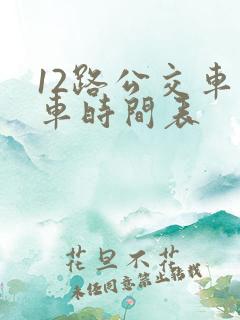 12路公交车
车時間表
花旦不花
未经同意禁止转载